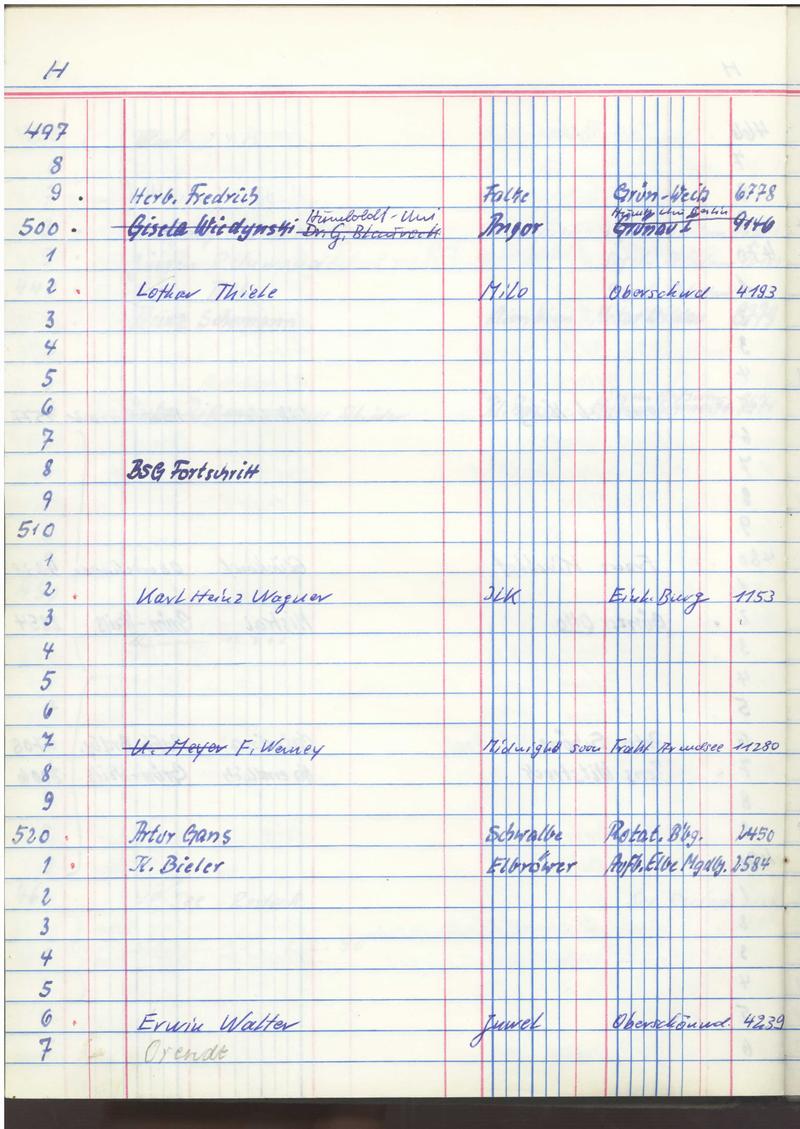 H
497
8
9 . Herb. Fredrich Falke Grün-Weiß 6778
Humboldt-Uni Humb. Uni Berlin
500 . Gisela Wiedynski Dr. G. Angor Grünau I 9146
1
2 . Lothar Thiele Milo Oberschwd 4193
3
4
5
6
7
8 BSG Fortschritt
9
510
1
2 . Karl Heinz Wagner Einh. Burg 1153
3
4
5
6
7 U. Meyer F. Werney Midnight soon Trakt Arendsee 11280
8
9
520 . Artur Gans Schwalbe Rotat. Bbg. 2450
1 . K. Bieler Elbröwer Aufb. Elbe Mgdbg. 2584
2
3
4
5
6 . Erwin Walter Juwel Oberschönwd. 4239
7 Orendt